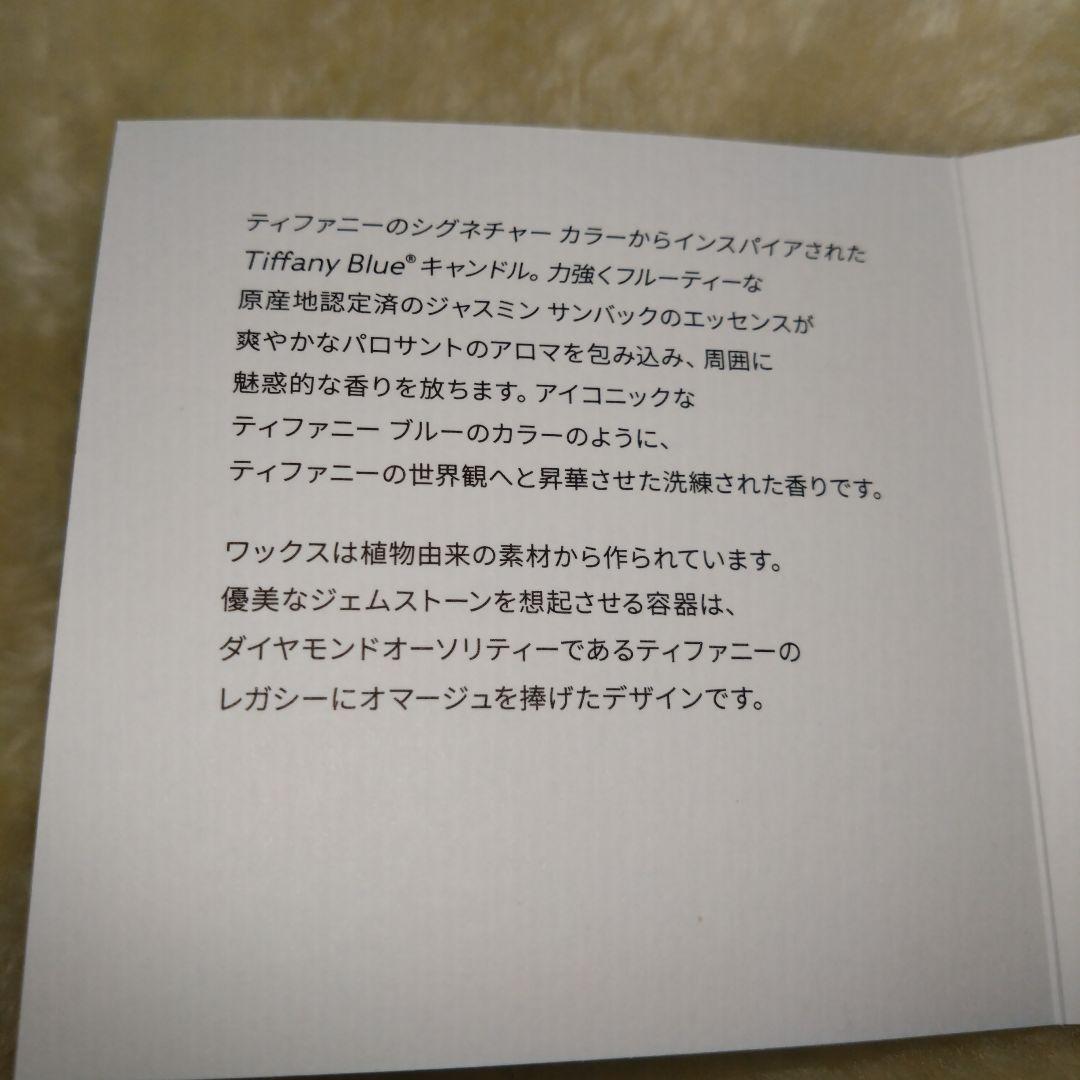 ティファニーのシグネチャー カラーからインスパイアされた
Tiffany Blue® キャンドル。力強くフルーティーな
原産地認定済のジャスミン サンバックのエッセンスが
爽やかなパロサントのアロマを包み込み、周囲に
魅惑的な香りを放ちます。アイコニックな
ティファニー ブルーのカラーのように、
ティファニーの世界観へと昇華させた洗練された香りです。
ワックスは植物由来の素材から作られています。
優美なジェムストーンを想起させる容器は、
ダイヤモンドオーソリティーであるティファニーの
レガシーにオマージュを捧げたデザインです。